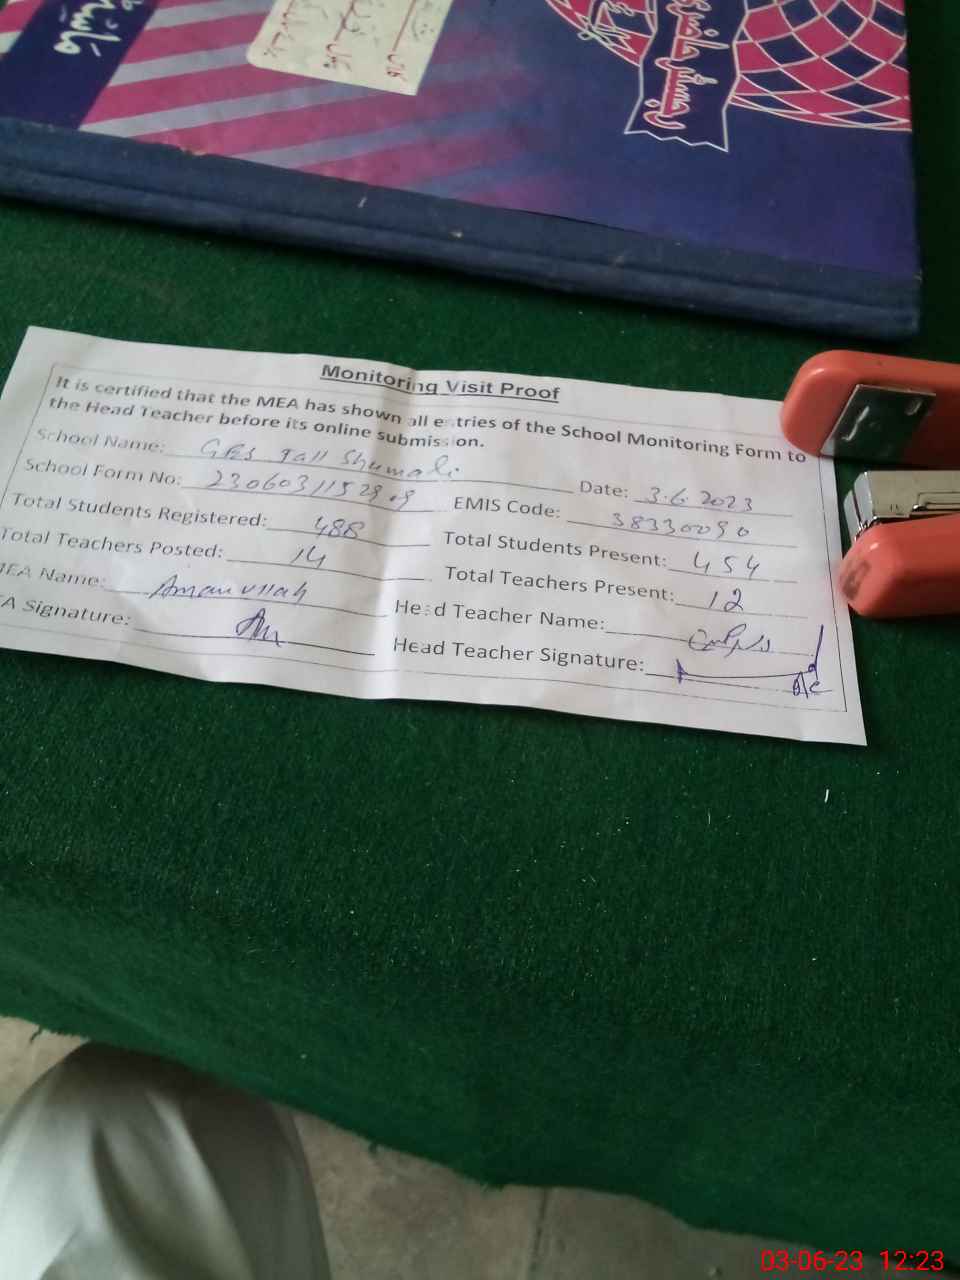 رجسٹر حاضری
Monitoring Visit Proof
It is certified that the MEA has shown all entries of the School Monitoring Form to
the Head Teacher before its online Submission.
School Name: GBS Tall Shumali
Date: 3.6.2023
School Form No:
EMIS Code: 38330090
Total Students Registered: 488
Total Students Present: 454
Total Teachers Posted: 14
Total Teachers Present: 12
MEA Name: Amanullah
Head Teacher Name:
EA Signature:
Head Teacher Signature:
03-06-23 12:23